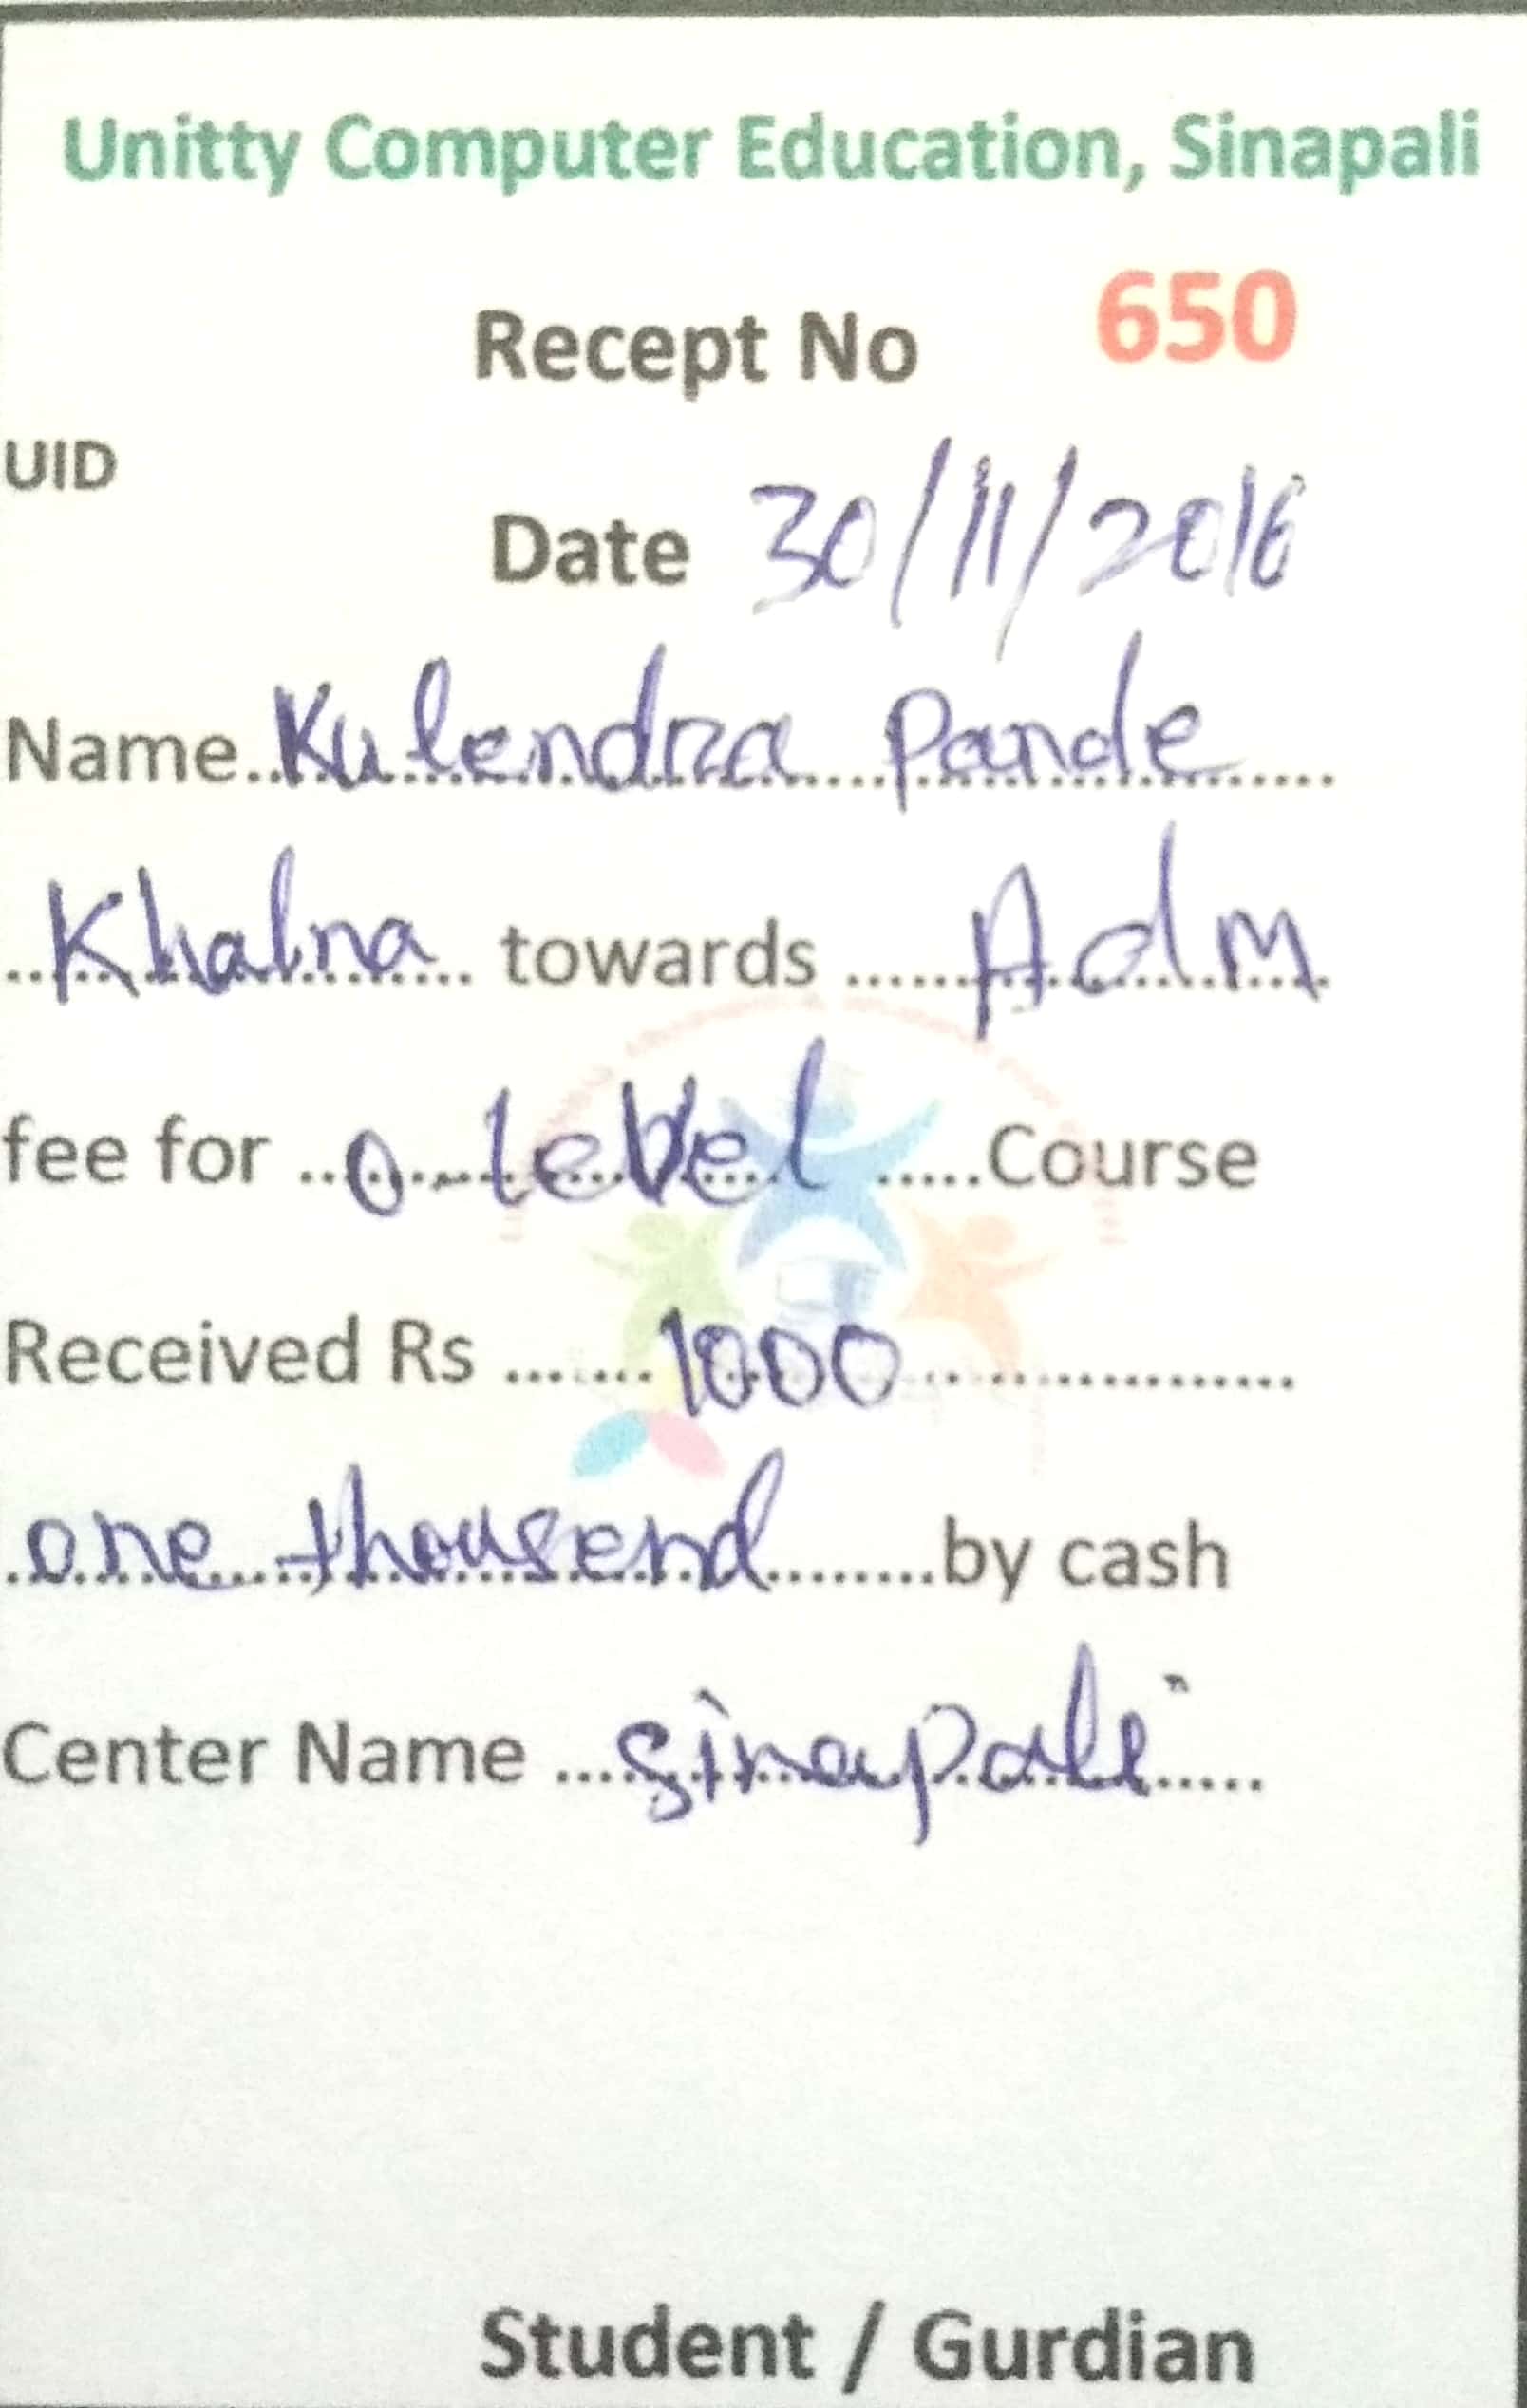 Unitty Computer Education, Sinapali
Recept No 650
UID
Date 30/11/2016
Name Kulendra Pande
Khalna towards Adm
fee for O level Course
Received Rs 1000
one thousend by cash
Center Name Sinapali
Student / Gurdian